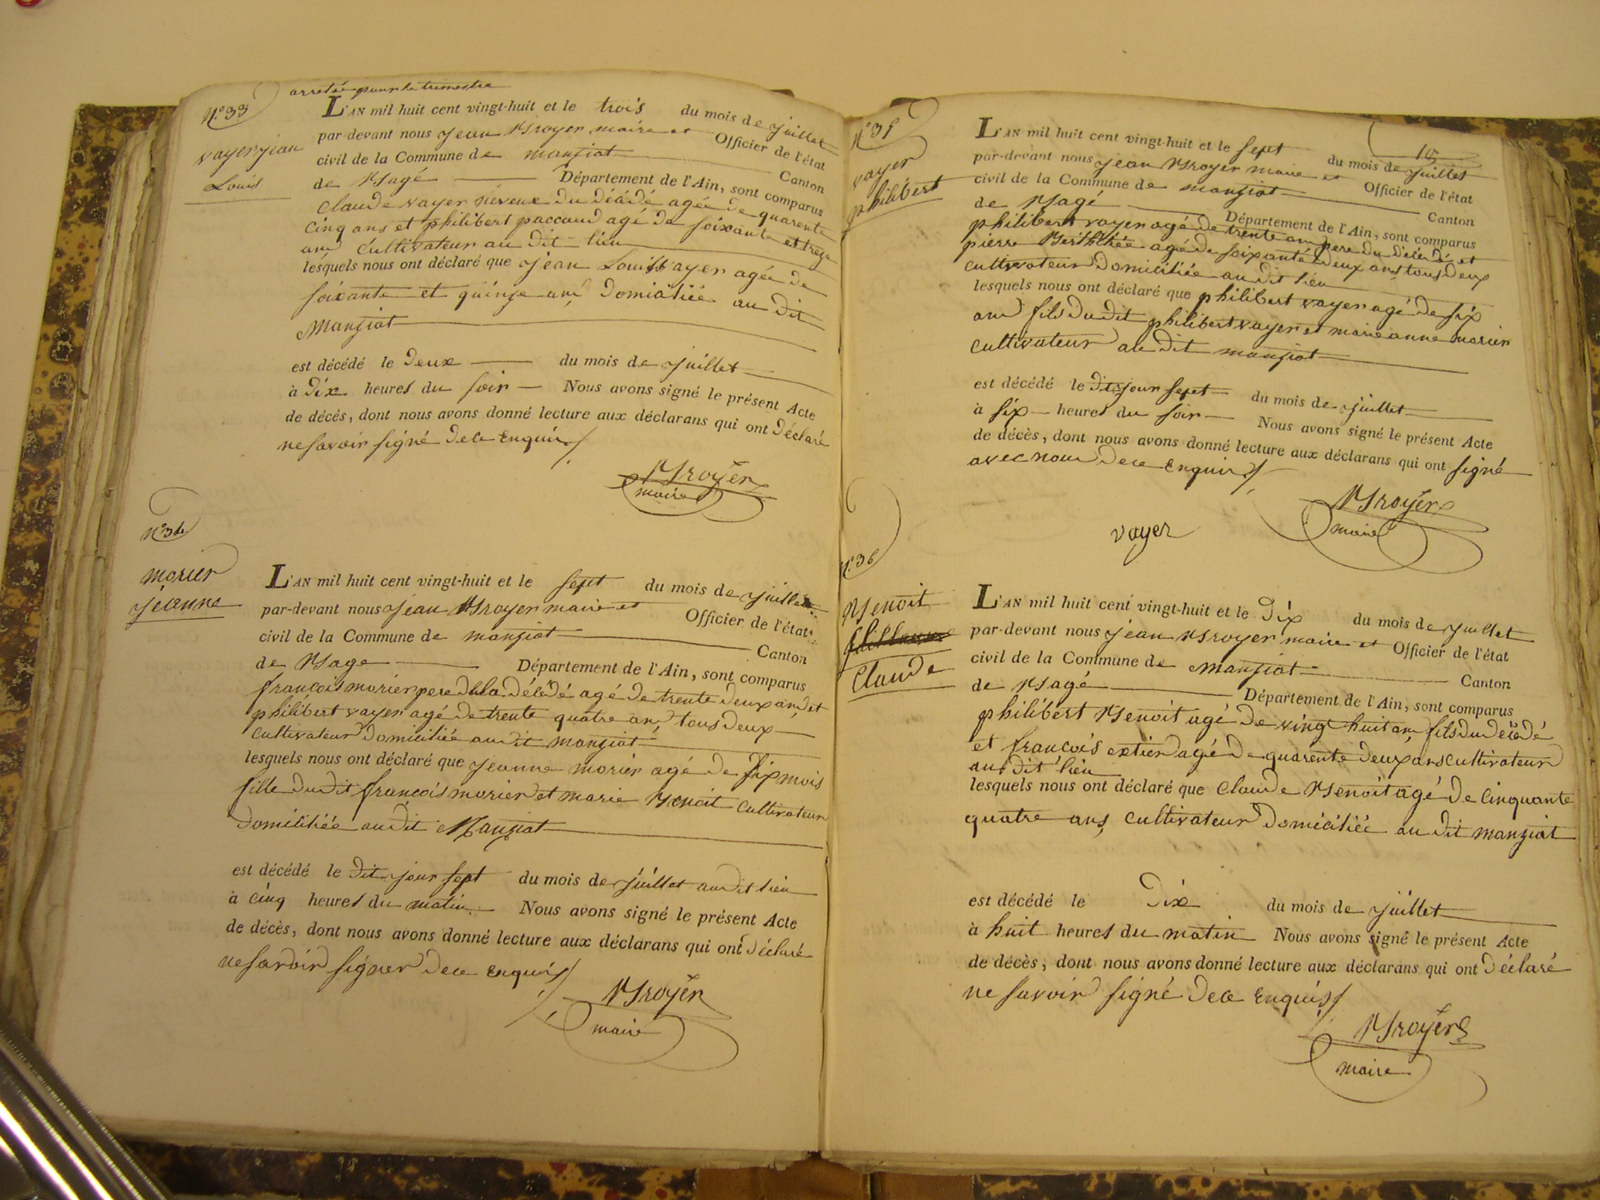 arretée pour le trimestre
N° 33
vayer jean
Louis
L'AN mil huit cent vingt-huit et le trois du mois de juillet
par-devant nous jean Broyer maire et Officier de l'état
civil de la Commune de manziat Canton
de Bagé Département de l'Ain, sont comparus
claude vayer neveux du décédé agée de quarente
cinq ans et philibert paccaud agé de soixante et treze
ans cultivateur au dit lieu
lesquels nous ont déclaré que jean Louis vayer agée de
soixante et quinze ans domiciliée au dit
Manziat
est décédé le deux du mois de juillet
à dix heures du soir Nous avons signé le présent Acte
de décès, dont nous avons donné lecture aux déclarans qui ont déclaré
ne savoir signé de ce enquis
Broyer
maire
N° 34
morier
jeanne
L'AN mil huit cent vingt-huit et le sept du mois de juillet
par-devant nous jean Broyer maire et Officier de l'état
civil de la Commune de manziat Canton
de Bage Département de l'Ain, sont comparus
francois morier pere de la décédé agé de trente deux ans et
philibert vayer agé de trente quatre ans tous deux
cultivateur domiciliée au dit manziat
lesquels nous ont déclaré que jeanne morier agé de six mois
fille du dit francois morier et marie Benoit cultivateur
domiciliée au dit Manziat
est décédé le dit jour sept du mois de juillet au dit lieu
à cinq heures du matin Nous avons signé le présent Acte
de décès, dont nous avons donné lecture aux déclarans qui ont déclaré
ne savoir signer de ce enquis
Broyer
maire
N° 35
vayer
philibert
15
L'AN mil huit cent vingt-huit et le sept du mois de juillet
par-devant nous jean Broyer maire et Officier de l'état
civil de la Commune de manziat Canton
de Bagé Département de l'Ain, sont comparus
philibert vayer agé de trente ans pere du décédé et
pierre agé de soixante deux ans tous deux
cultivateur domiciliée au dit lieu
lesquels nous ont déclaré que philibert vayer agé de six
ans fils du dit philibert vayer et marie anne morier
cultivateur au dit manziat
est décédé le dit jour sept du mois de juillet
à six heures du soir Nous avons signé le présent Acte
de décès, dont nous avons donné lecture aux déclarans qui ont signé
avec nous de ce enquis
Broyer
maire
vayer
N° 36
Benoit
Claude
L'AN mil huit cent vingt-huit et le dix du mois de juillet
par-devant nous jean Broyer maire et Officier de l'état
civil de la Commune de Manziat Canton
de Bagé Département de l'Ain, sont comparus
philibert Benoit agé de vingt huit ans fils du décédé
et francois agé de quarente deux ans cultivateur
au dit lieu
lesquels nous ont déclaré que claude Benoit agé de cinquante
quatre ans cultivateur domiciliée au dit manziat
est décédé le dix du mois de juillet
à huit heures du matin Nous avons signé le présent Acte
de décès, dont nous avons donné lecture aux déclarans qui ont déclaré
ne savoir signé de ce enquis
Broyer
maire